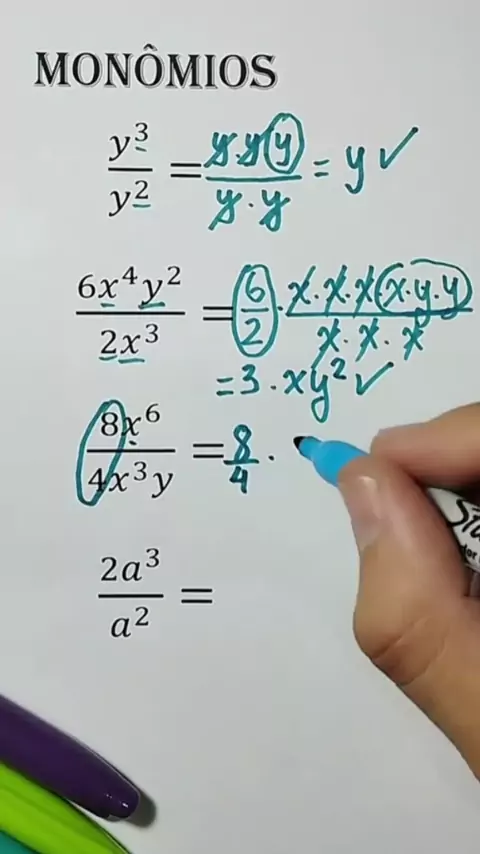 MONÔMIOS
y³/y² = y y y / y · y = y ✓
6x⁴y²/2x³ = 6/2 · x · x · x x · y · y / x · x · x
= 3 · xy² ✓
8x⁶/4x³y = 8/4 ·
2a³/a² =